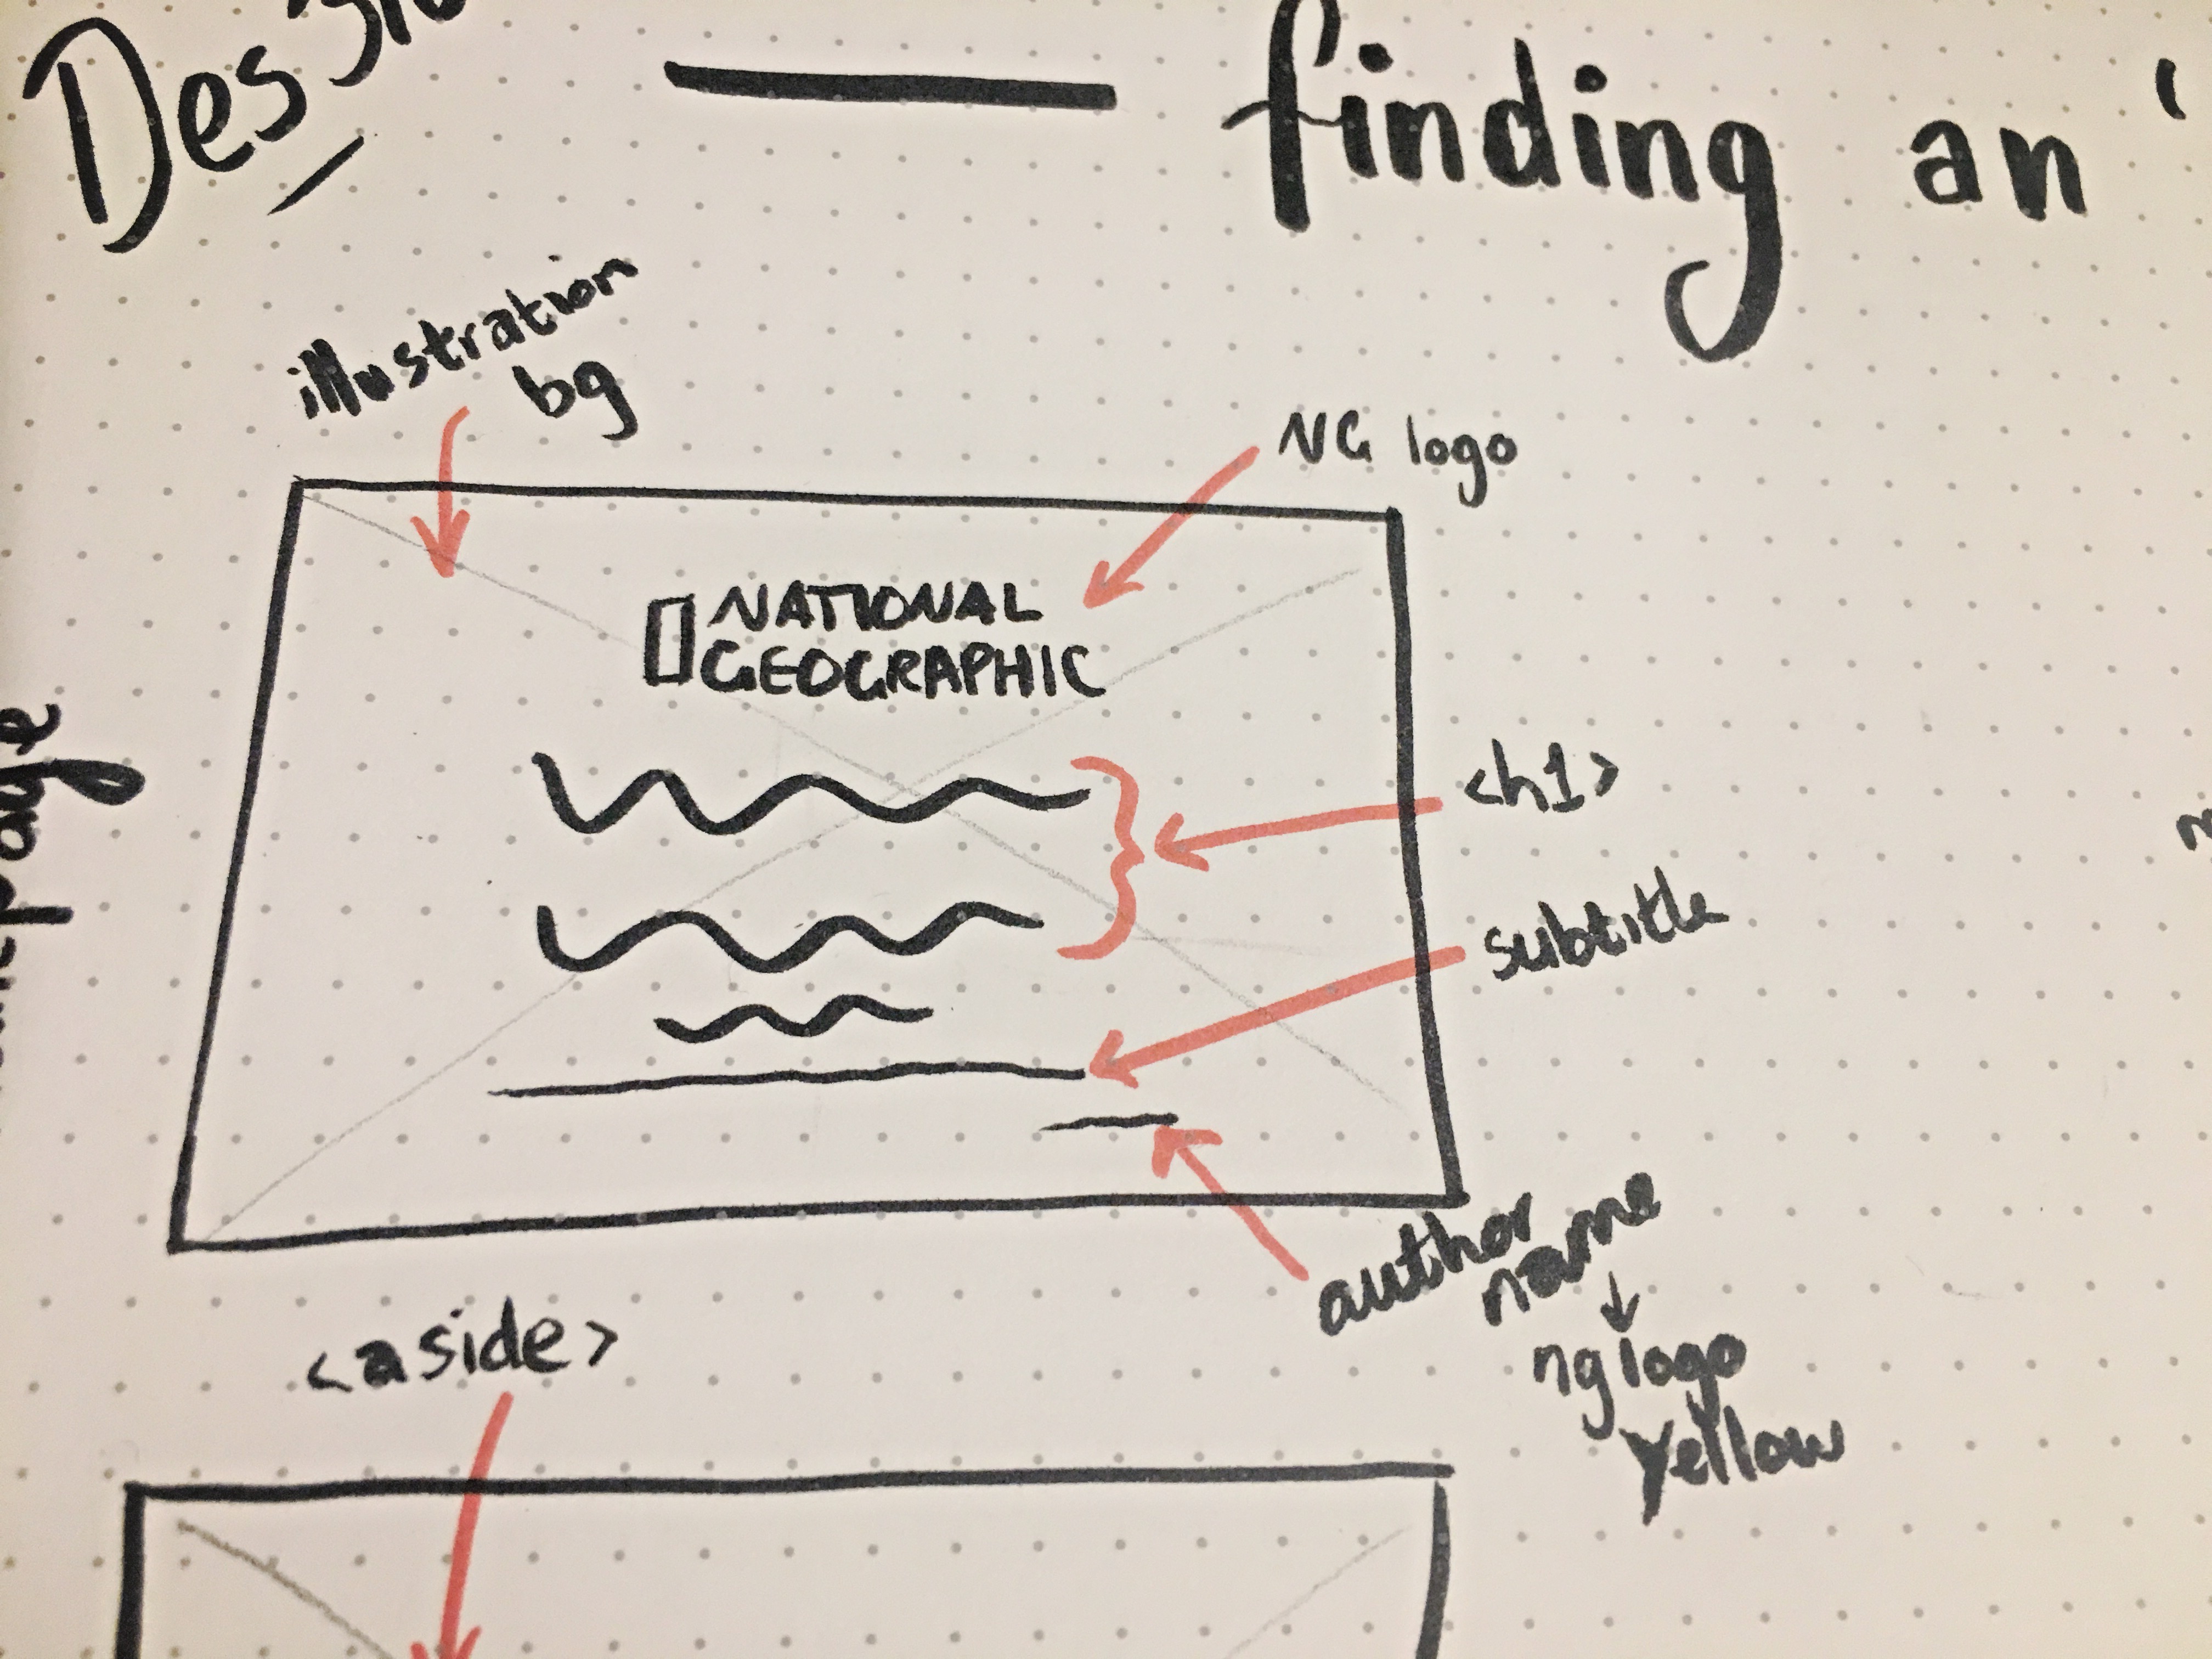 finding an '
illustration
bg
NG logo
NATIONAL
GEOGRAPHIC
<h1>
subtitle
page
author
name
↓
ng logo
yellow
<aside>